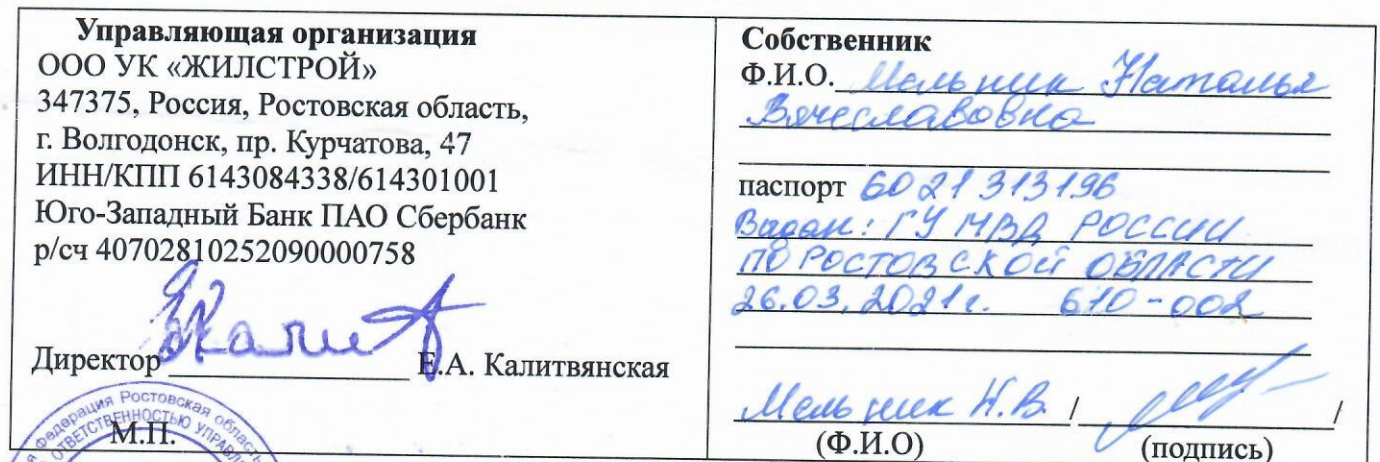 Управляющая организация
ООО УК «ЖИЛСТРОЙ»
347375, Россия, Ростовская область,
г. Волгодонск, пр. Курчатова, 47
ИНН/КПП 6143084338/614301001
Юго-Западный Банк ПАО Сбербанк
р/сч 40702810252090000758
Директор Е.А. Калитвянская
М.П.
Федерация Ростовская область
ОТВЕТСТВЕННОСТЬЮ
Собственник
Ф.И.О. Мельник Наталья
Вячеславовна
паспорт 6021 313196
Выдан: ГУ МВД РОССИИ
ПО РОСТОВСКОЙ ОБЛАСТИ
26.03.2021г. 610-002
Мельник Н.В. / /
(Ф.И.О) (подпись)